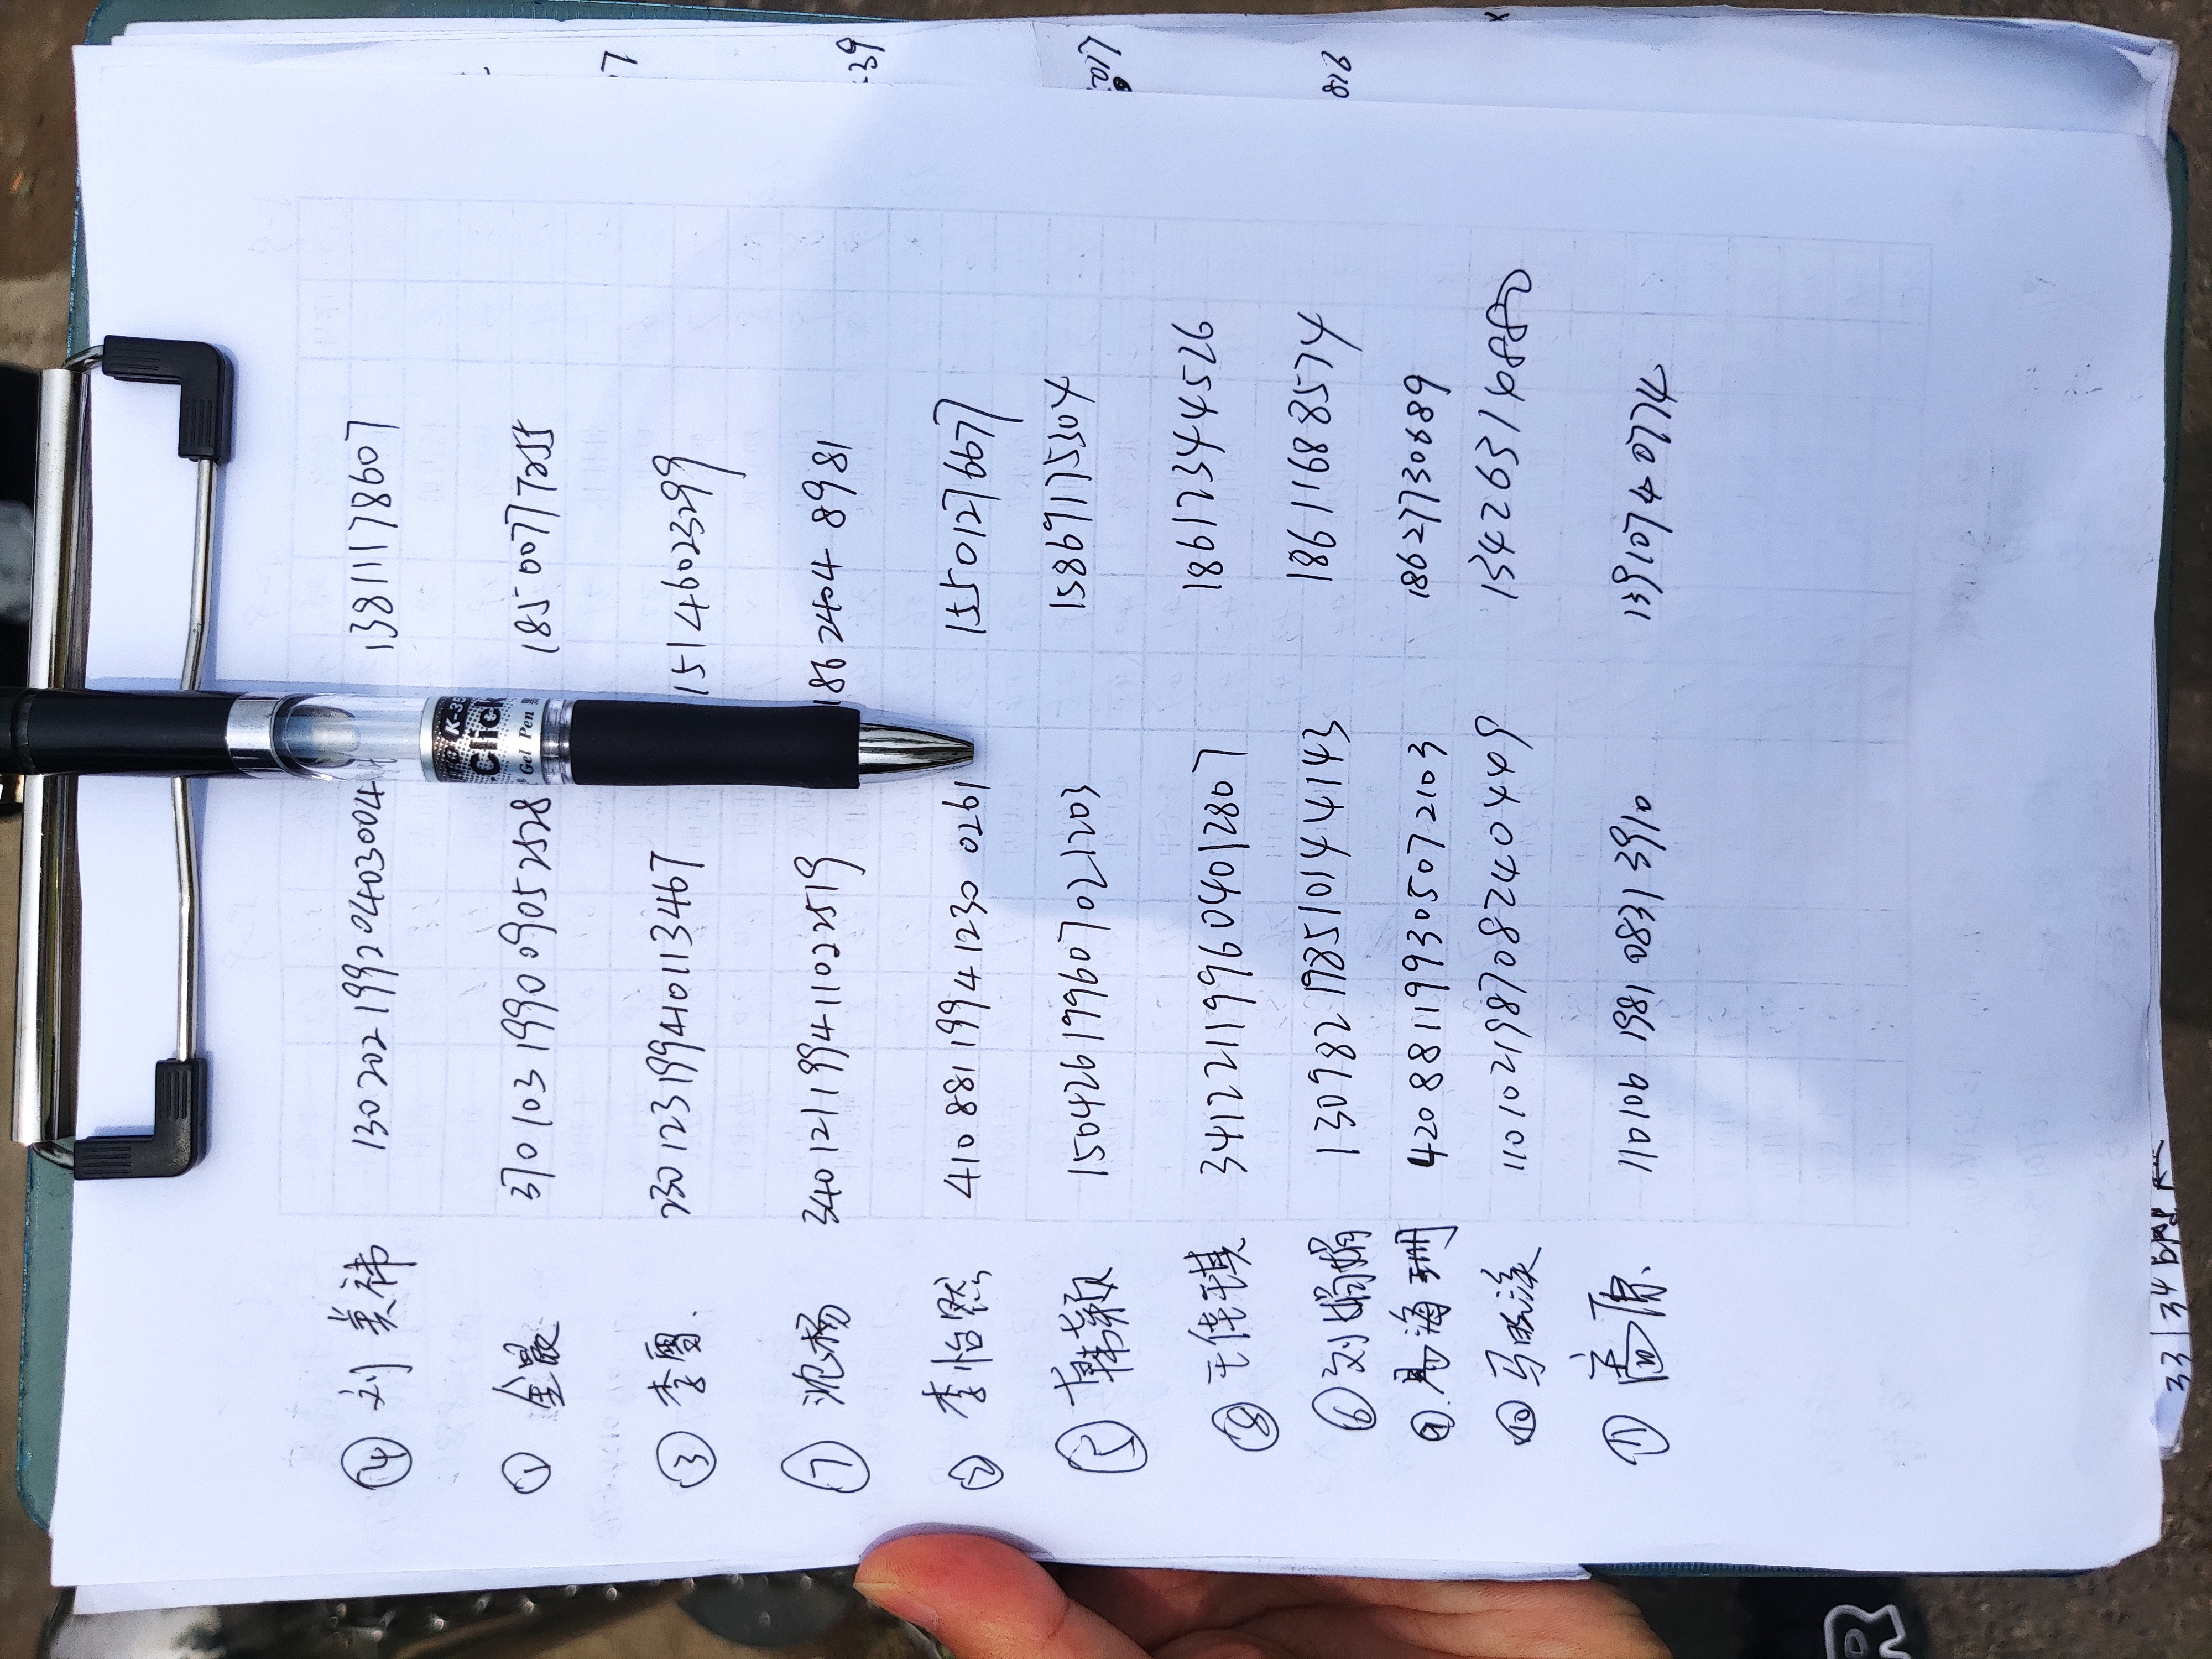 ④ 刘美祎 13020219920403004 13811178607
① 金晸 370103199009052528 18500777255
③ 李雪. 230123199410113467 15146023299
⑦ 沈杨 340121199411022519 18624048981
② 李怡然 410881199412300261 15501276677
⑤ 韩颖 150426199607021203 15869175504
⑧ 王佳琪 341221199604012807 18612344526
⑥ 刘娟娟 130982198510144143 18611688574
⑨. 易海珊 420881199305072103 18627730689
⑩ 马 110102198708240449 1342631
⑪ 110106198108313910 13910740774
K-35
Click
Gel Pen
7
39
816
33
34
R